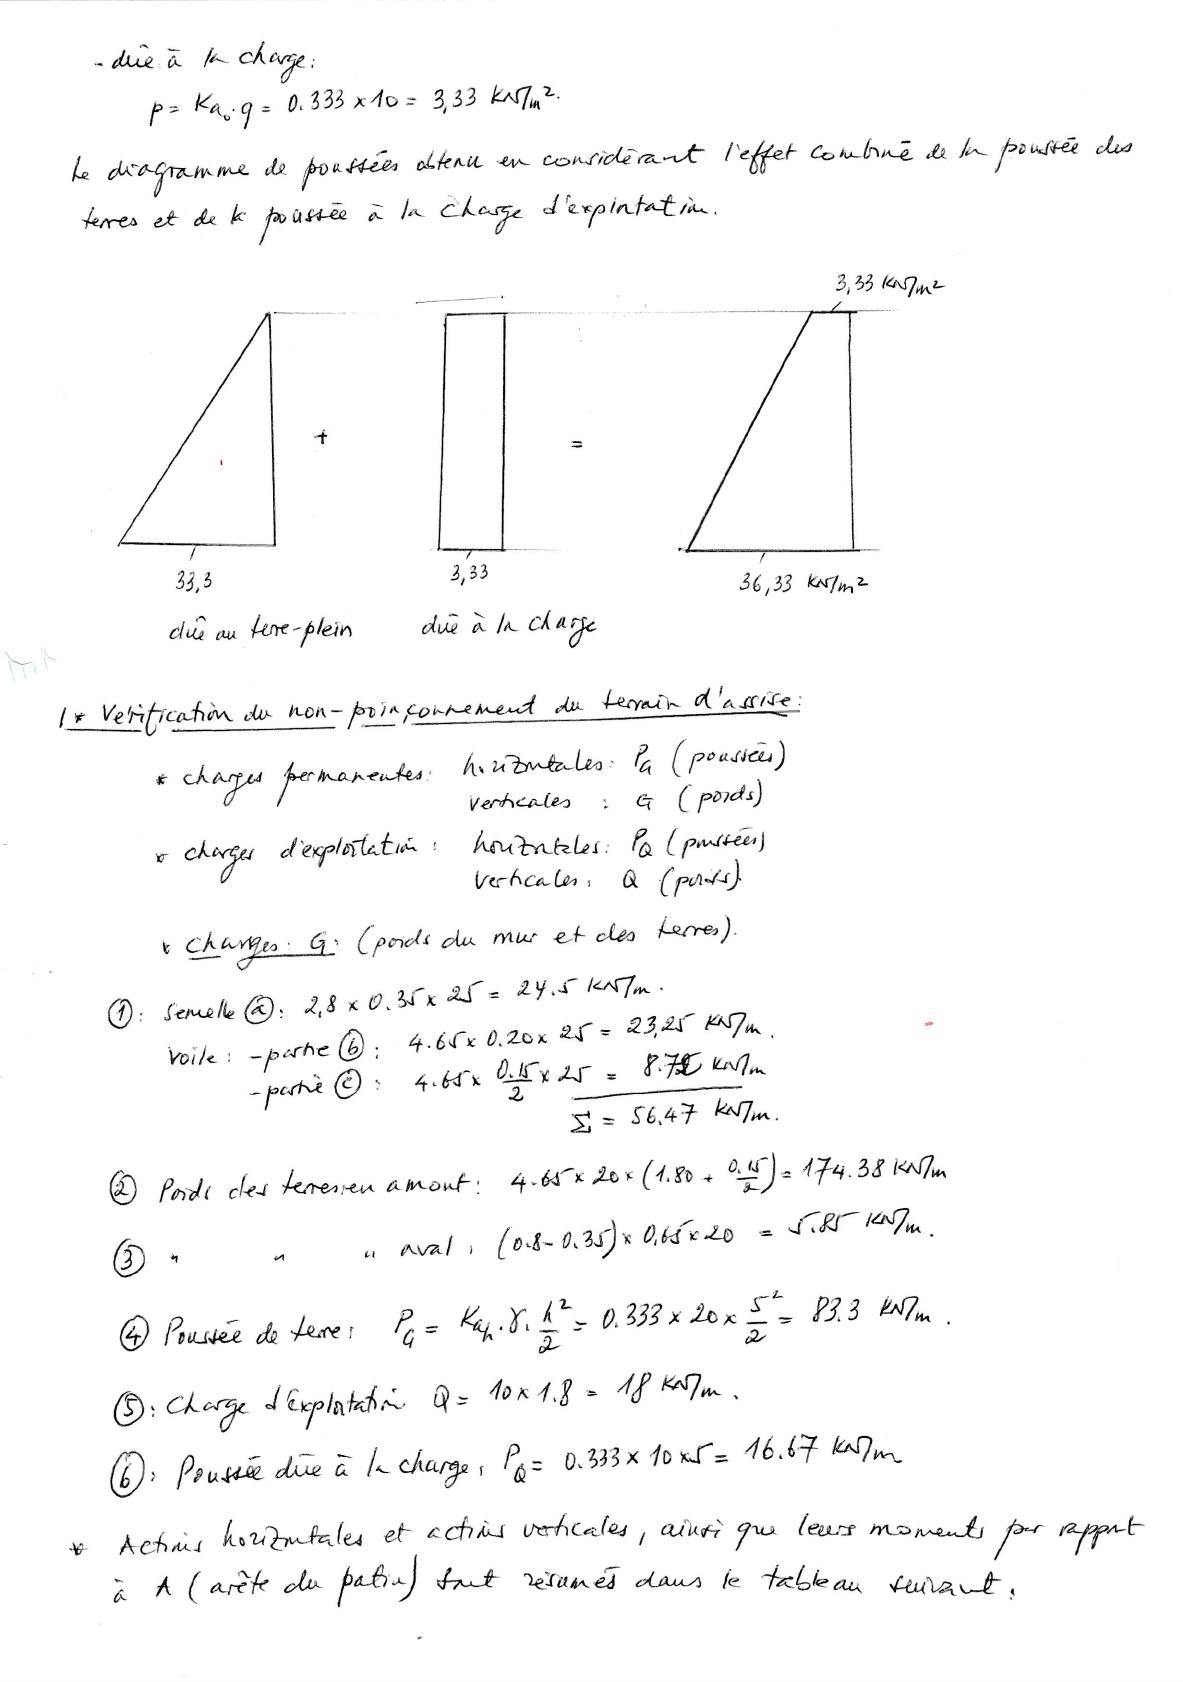 - dûe à la charge:
p = Ka₀.q = 0.333 x 10 = 3,33 KN/m².
Le diagramme de poussées obtenu en considérant l'effet combiné de la poussée des
terres et de la poussée à la charge d'exploitation.
3,33 KN/m²
+
=
33,3
3,33
36,33 KN/m²
dûe au terre-plein
dûe à la charge
1* Vérification du non-poinçonnement du terrain d'assise:
* charges permanentes: horizontales: PG (poussées)
verticales : G (poids)
* charges d'exploitation: horizontales: PQ (poussées)
verticales: Q (poids).
* charges: G: (poids du mur et des terres).
①: Semelle ⓐ: 2,8 x 0.35 x 25 = 24.5 KN/m.
Voile: - partie ⓑ: 4.65 x 0.20 x 25 = 23,25 KN/m.
- partie ⓒ: 4.65 x 0.15/2 x 25 = 8.72 KN/m
Σ = 56,47 KN/m.
② Poids des terres en amont: 4.65 x 20 x (1.80 + 0.15/2) = 174.38 KN/m
③ " " " aval: (0.8 - 0.35) x 0,65 x 20 = 5.85 KN/m.
④ Poussée de terre: PG = Kah.γ.h²/2 = 0.333 x 20 x 5²/2 = 83.3 KN/m.
⑤: Charge d'Exploitation Q = 10 x 1.8 = 18 KN/m.
⑥: Poussée dûe à la charge: PQ = 0.333 x 10 x 5 = 16.67 KN/m
* Actions horizontales et actions verticales, ainsi que leurs moments par rapport
à A (arête du patin) sont résumés dans le tableau suivant.